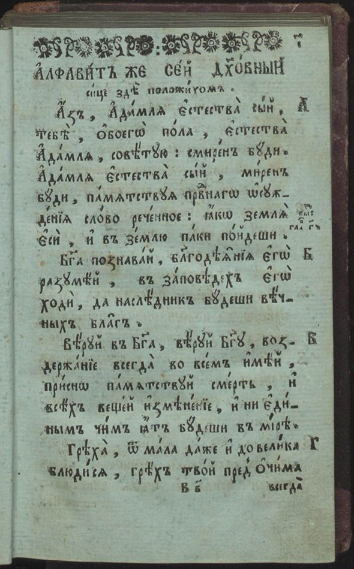 АЛФАВИ́ТЪ ЖЕ СЕ́Й ДХ҃О́ВНЫЙ
си́це здѣ̀ положи́хомъ.
А҆́зъ, А҆да́мля є҆стества̀ сы́й, А
тебѣ̀, ѻ҆боегѡ̀ по́ла, є҆стества̀
А҆да́мля, совѣ́тую: смире́нъ бу́ди.
А҆да́мля є҆стества̀ сы́й, ми́ренъ
бу́ди, па́мятствуя пра́внагѡ ѡ҆суж-
де́нїя сло́во рече́нное: ꙗ҆́кѡ земля̀
є҆сѝ, и҆ въ зе́млю па́ки по́йдеши.
Бг҃а познава́й, бл҃годѣѧ́нїя є҆гѡ̀ Б
разумѣ́й, въ за́повѣдехъ є҆гѡ̀
ходѝ, да наслѣ́дникъ бу́деши вѣ́ч-
ныхъ бла́гъ.
Вѣ́руй въ Бг҃а, вѣ́руй Бг҃у, воз- В
держа́нїе всегда̀ во все́мъ и҆мѣ́й,
при́снѡ па́мятствуй сме́рть, и҆
всѣ́хъ веще́й и҆змѣне́нїе, и҆ ни є҆ди́-
нымъ чи́мъ ꙗ҆́тъ бу́деши въ мі́рѣ.
Грѣха̀, ѿ ма́ла да́же и҆ до вели́ка Г
блюди́ся, грѣ́хъ тво́й пред̾ ѻ҆чи́ма
всегда̀